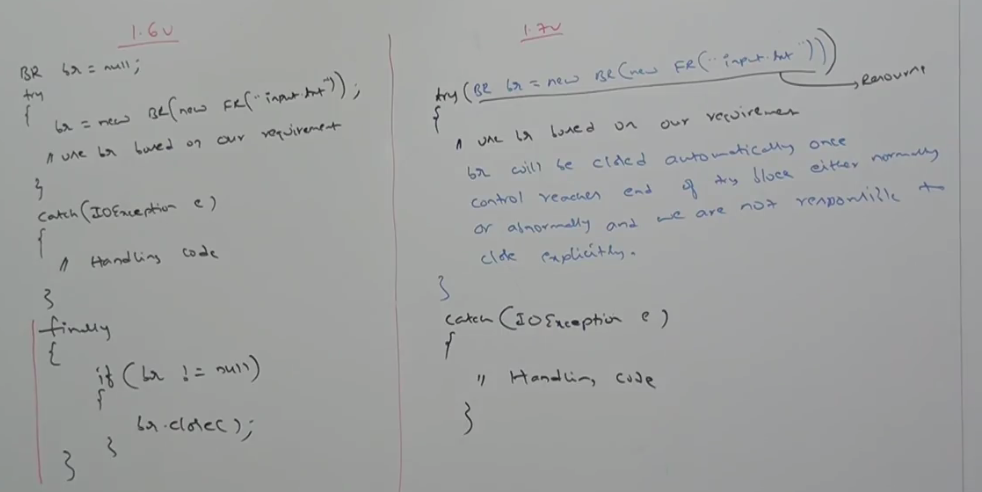 1.6v
BR br = null;
try
{
br = new BR(new FR("input.txt"));
// use br based on our requirement
}
catch(IOException e)
{
// Handling code
}
finally
{
if (br != null)
{
br.close();
}
}
1.7v
try(BR br = new BR(new FR("input.txt")))
Resource
{
// use br based on our requirement
br will be closed automatically once
control reaches end of try block either normally
or abnormally and we are not responsible to
close explicitly.
}
catch(IOException e)
{
// Handling code
}